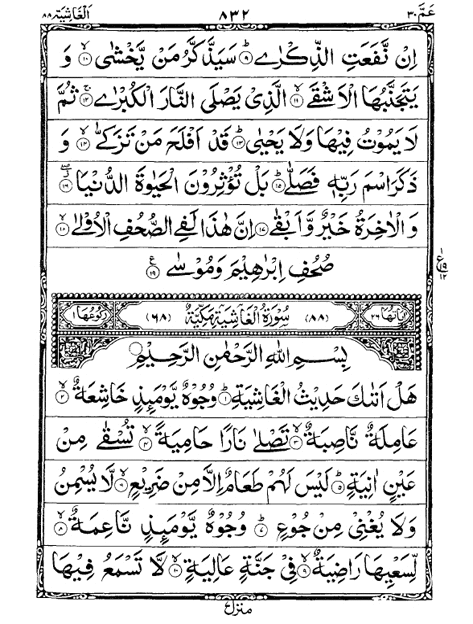 عَمَّ ٣٠ ٨٣٢ اَلْغَاشِيَة ٨٨
اِنْ نَّفَعَتِ الذِّكْرٰى ۝٩ سَيَذَّكَّرُ مَنْ يَّخْشٰى ۝١٠ وَ
يَتَجَنَّبُهَا الْاَشْقَى ۝١١ الَّذِىْ يَصْلَى النَّارَ الْكُبْرٰى ۝١٢ ثُمَّ
لَا يَمُوْتُ فِيْهَا وَلَا يَحْيٰى ۝١٣ قَدْ اَفْلَحَ مَنْ تَزَكّٰى ۝١٤ وَ
ذَكَرَ اسْمَ رَبِّهٖ فَصَلّٰى ۝١٥ بَلْ تُؤْثِرُوْنَ الْحَيٰوةَ الدُّنْيَا ۝١٦
وَ الْاٰخِرَةُ خَيْرٌ وَّ اَبْقٰى ۝١٧ اِنَّ هٰذَا لَفِى الصُّحُفِ الْاُوْلٰى ۝١٨
صُحُفِ اِبْرٰهِيْمَ وَ مُوْسٰى ۝١٩
اٰيَاتُهَا ٢٦ (٨٨) سُوْرَةُ الْغَاشِيَةِ مَكِّيَّةٌ (٦٨) رُكُوْعُهَا ١
بِسْمِ اللّٰهِ الرَّحْمٰنِ الرَّحِيْمِ
هَلْ اَتٰىكَ حَدِيْثُ الْغَاشِيَةِ ۝١ وُجُوْهٌ يَّوْمَئِذٍ خَاشِعَةٌ ۝٢
عَامِلَةٌ نَّاصِبَةٌ ۝٣ تَصْلٰى نَارًا حَامِيَةً ۝٤ تُسْقٰى مِنْ
عَيْنٍ اٰنِيَةٍ ۝٥ لَيْسَ لَهُمْ طَعَامٌ اِلَّا مِنْ ضَرِيْعٍ ۝٦ لَّا يُسْمِنُ
وَلَا يُغْنِىْ مِنْ جُوْعٍ ۝٧ وُجُوْهٌ يَّوْمَئِذٍ نَّاعِمَةٌ ۝٨
لِّسَعْيِهَا رَاضِيَةٌ ۝٩ فِىْ جَنَّةٍ عَالِيَةٍ ۝١٠ لَّا تَسْمَعُ فِيْهَا